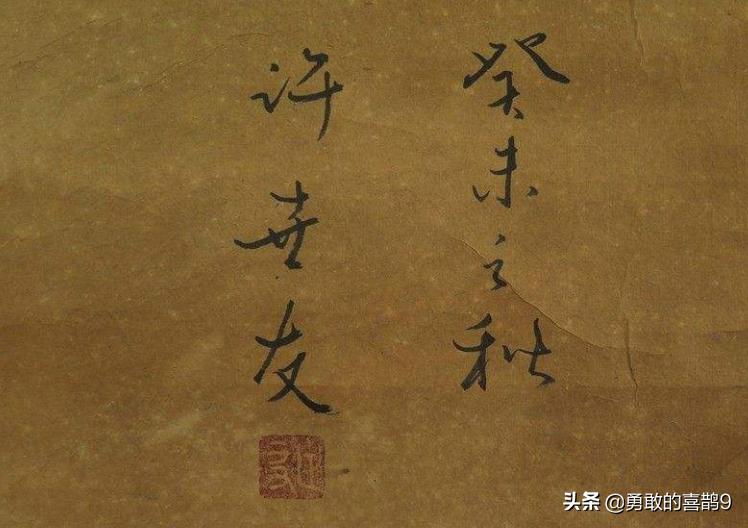 癸未之秋
许世友
头条 @勇敢的喜鹊9